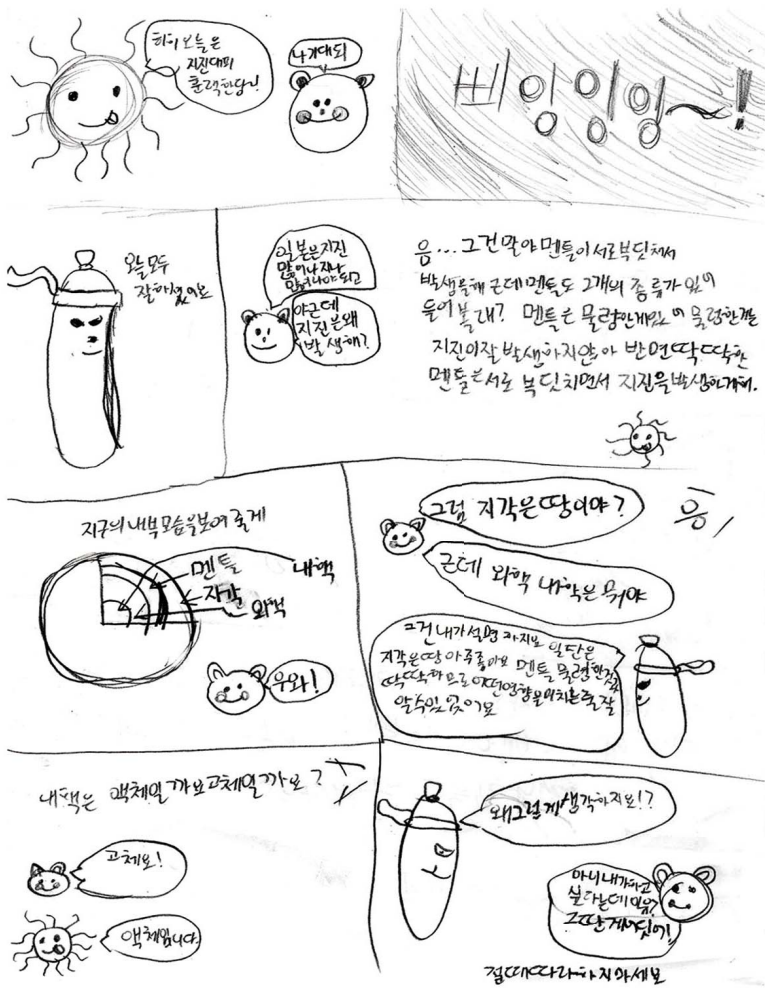 히히 오늘은
지진대피
훈련한당!
나 기대되
삐잉잉잉~!
오늘 모두
잘하였어요
일본은 지진
많이 나지
야 근데
지진은 왜
발생해?
음... 그건 말야 멘틀이 서로 부딧쳐서
발생을해 근데 멘틀도 2개의 종류가 있어
들어볼래? 멘틀은 물렁한게있어 물렁한것은
지진이 잘 발생하지않아 반면 딱딱한
멘틀은 서로 부딧치면서 지진을 발생하게해.
지구의 내부모습을 보여줄게
멘틀
내핵
지각
외핵
우와!
그럼 지각은 땅이야?
응
근데 외핵 내핵은 뭐야
그건 내가 설명하지요 일단은
지각은 땅 아주 좋아요 멘틀 물렁한것과
딱딱하므로 어떤영향을 미치는줄 잘
알수있었어요
내핵은 액체일까요 고체일까요?
고체요!
액체입니다
왜 그렇게 생각하지요!?
아니 내가
싫다는데
그딴게 어딧어!
절때 따라하지마세요